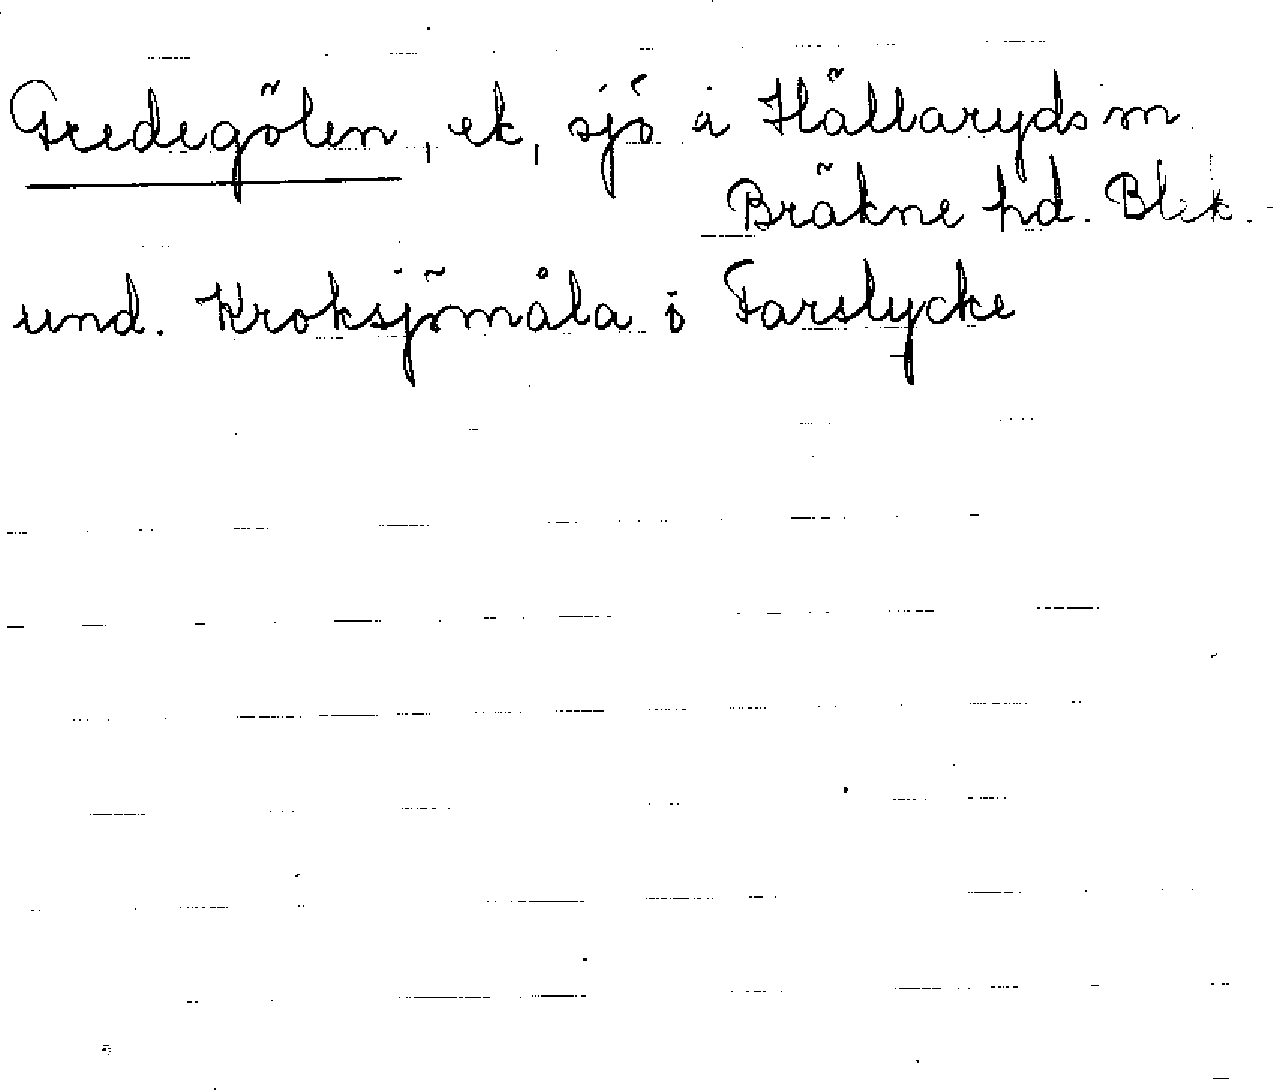 Gredegölen, ek, sjö å Hällaryds m
Bräkne hd. Blek.
und. Kroksjömåla i Farslycke